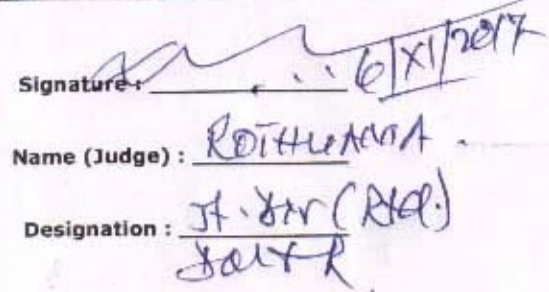 Signature : 6/XI/2017
Name (Judge) : ROTHUAMA .
Designation : Jt. Dir (Rtd.)